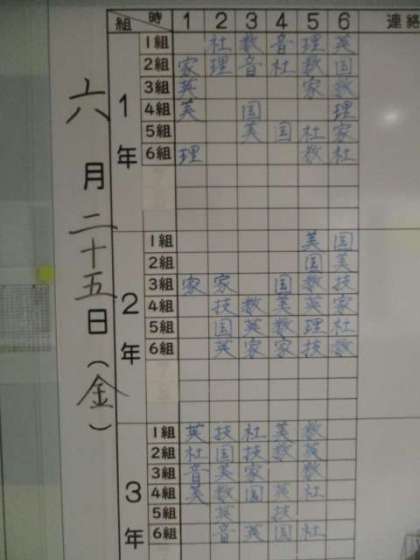 六月二十五日(金)
組 時 1 2 3 4 5 6 連絡
1年
1組 社 数 音 理 英
2組 家 理 音 社 数 国
3組 英 家 数
4組 英 国 理
5組 英 国 社 家
6組 理 数 社
2年
1組 英 国
2組 国 英
3組 家 家 国 数 技
4組 技 数 英 英 家
5組 国 英 数 理 社
6組 英 家 家 技 数
3年
1組 英 技 社 英 数
2組 社 国 技 数 英
3組 音 英 家 数
4組 英 数 国 英 社
5組 英 技
6組 音 英 国 社